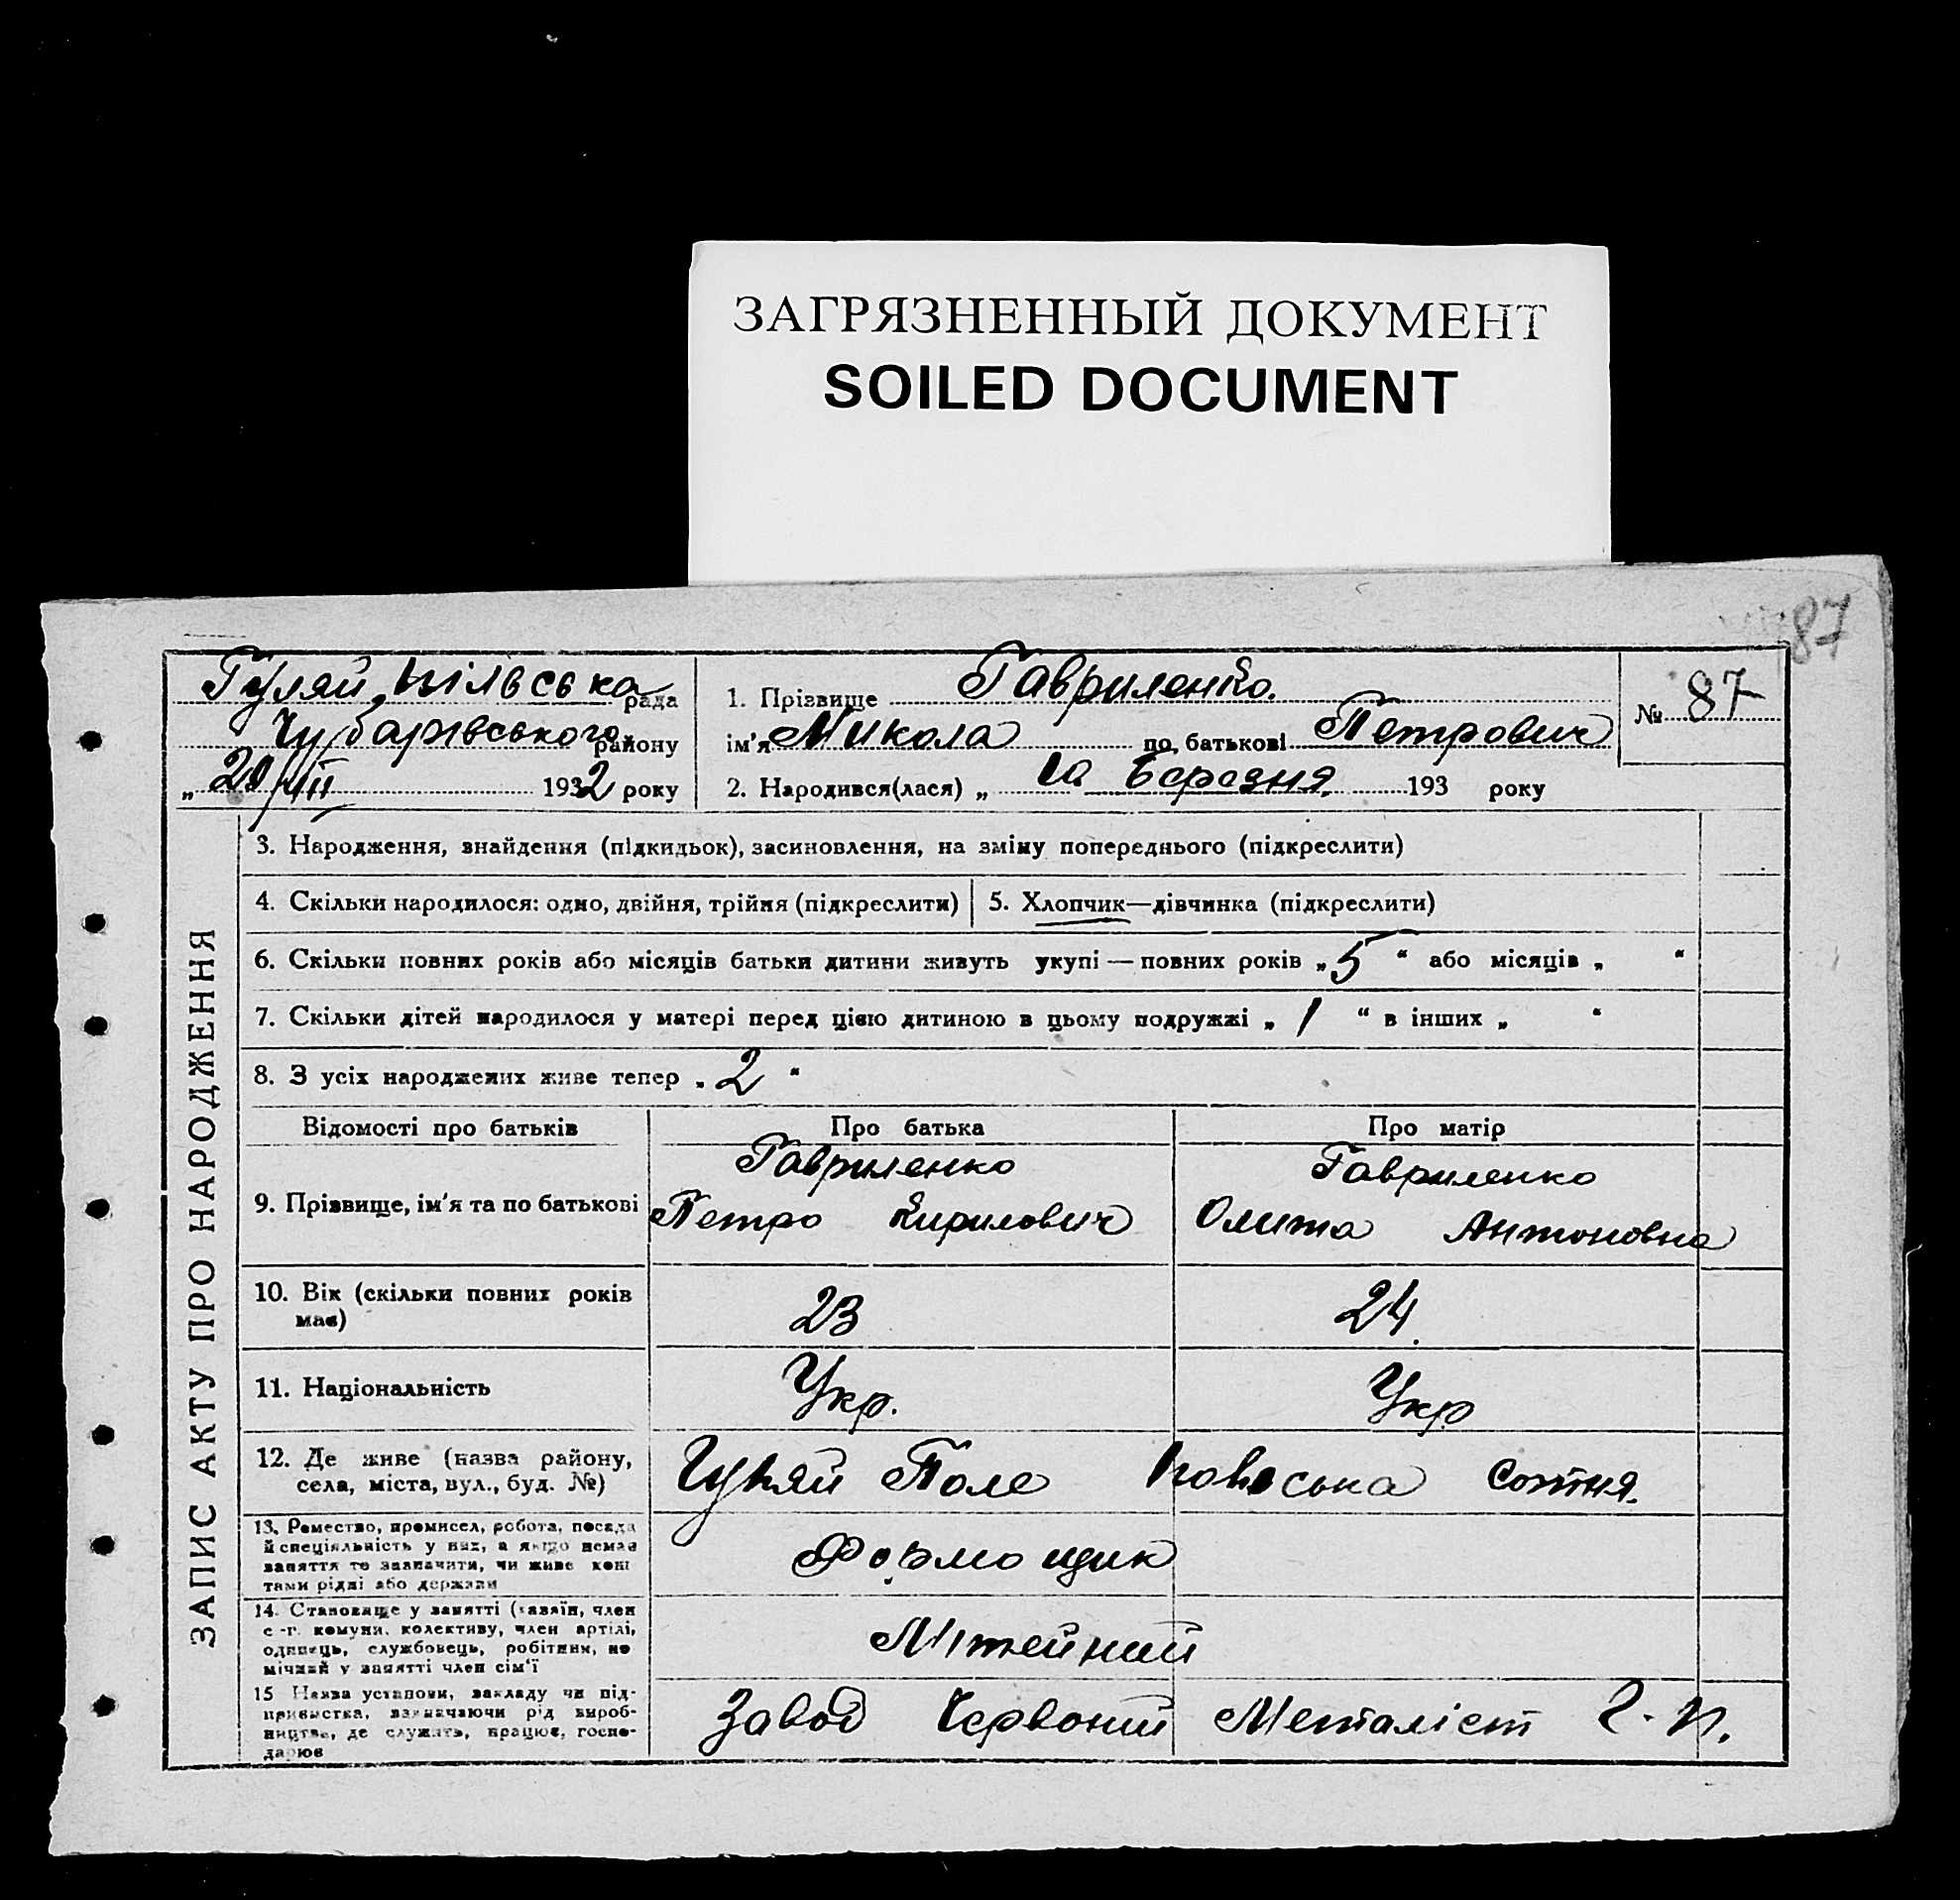 ЗАГРЯЗНЕННЫЙ ДОКУМЕНТ
SOILED DOCUMENT
87
Гуляй-Пільська рада
Чубарівського району
„ 20/III 1932 року
1. Прізвище Гавриленко.
ім'я Микола по батькові Петрович
2. Народився(лася) „ березня 193 року
№ 87
ЗАПИС АКТУ ПРО НАРОДЖЕННЯ
3. Народження, знайдення (підкидьок), засиновлення, на зміну попереднього (підкреслити)
4. Скільки народилося: одно, двійня, трійня (підкреслити)
5. Хлопчик—дівчинка (підкреслити)
6. Скільки повних років або місяців батьки дитини живуть укупі — повних років „ 5 “ або місяців „ “
7. Скільки дітей народилося у матері перед цією дитиною в цьому подружжі „ 1 “ в інших „ “
8. З усіх народжених живе тепер „ 2 “
Відомості про батьків
Про батька
Про матір
9. Прізвище, ім'я та по батькові
Гавриленко
Петро Кирилович
Гавриленко
Антоновна
10. Вік (скільки повних років
має)
23
24.
11. Національність
Укр.
Укр
12. Де живе (назва району,
села, міста, вул., буд. №)
Гуляй Поле сотня.
13. Ремество, промисел, робота, посада
й спеціяльність у них, а якщо немає
заняття то зазначити, чи живе кош
тами рідні або держави
Формощик
14. Становище у занятті (хазяїн, член
с.-г. комуни, колективу, член артілі,
одинець, службовець, робітник, по
мічний у занятті член сім'ї
Літейний
15 Назва установи, закладу чи під-
приємства, зазначаючи рід вироб-
ництва, де служить, працює, госпо-
дарює
Завод Червоний Металіст Г. П.